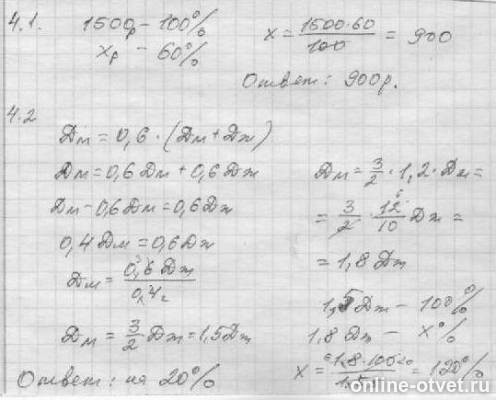 4.1. 1500р – 100%
xр – 60%
x = 1500·60 / 100 = 900
Ответ: 900р.
4.2
Дм = 0,6 · (Дм + Дж)
Дм = 0,6 Дм + 0,6 Дж
Дм – 0,6 Дм = 0,6 Дж
0,4 Дм = 0,6 Дж
Дм = 0,6 Дж / 0,4
Дм = 3/2 Дж = 1,5 Дж
Ответ: на 20%
Дм = 3/2 · 1,2 · Дм =
= 3/2 · 12/10 Дж =
= 1,8 Дж
1,5 Дж – 100%
1,8 Дж – x%
x = 1.8·100 / 1.5 = 120%
online-otvet.ru